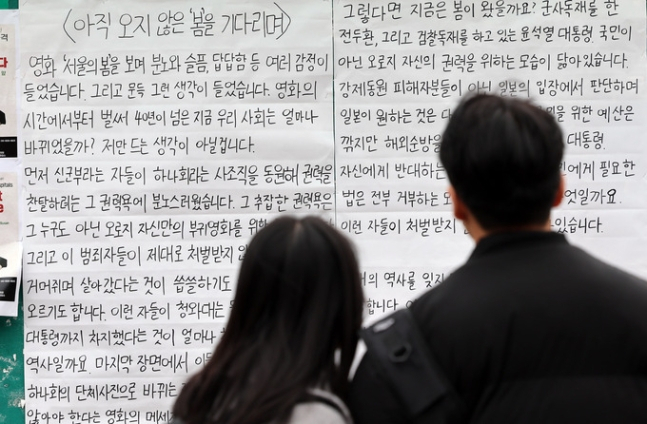 〈아직 오지 않은 '봄'을 기다리며〉
영화 '서울의 봄'을 보며 분노와 슬픔, 답답함 등 여러 감정이
들었습니다. 그리고 문득 그런 생각이 들었습니다. 영화의
시간에서부터 벌써 40년이 넘은 지금 우리 사회는 얼마나
바뀌었을까? 저만 드는 생각이 아닐겁니다.
먼저 신군부라는 자들이 하나회라는 사조직을 동원해 권력을
찬탈하려는 그 권력욕에 분노스러웠습니다. 그 추잡한 권력욕은
그 누구도 아닌 오로지 자신만의 부귀영화를 위한
그리고 이 범죄자들이 제대로 처벌받지
거머쥐며 살아갔다는 것이 씁쓸하기도
오르기도 합니다. 이런 자들이 청와대는
대통령까지 차지했다는 것이 얼마나
역사일까요. 마지막 장면에서
하나회의 단체사진으로 바뀌는
않아야 한다는 영화의
그렇다면 지금은 봄이 왔을까요? 군사독재를 한
전두환, 그리고 검찰독재를 하고 있는 윤석열 대통령 국민이
아닌 오로지 자신의 권력을 위하는 모습이 닮아있습니다.
강제동원 피해자분들이 아닌 일본의 입장에서 판단하며
일본이 원하는 것은 위한 예산은
깎지만 해외순방을 대통령.
자신에게 반대하는 필요한
법은 전부 거부하는
이런 자들이 처벌받지 있습니다.
역사를 잊지